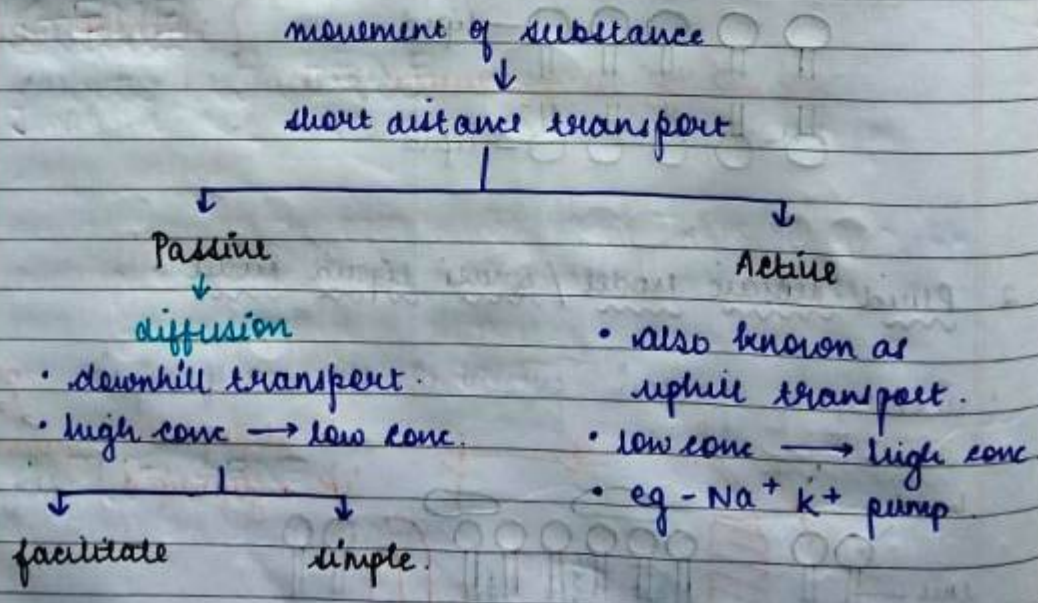 movement of substance
↓
short distance transport
Passive
↓
diffusion
• downhill transport.
• high conc → low conc.
facilitate
simple.
Active
• also known as
uphill transport.
• low conc → high conc
• eg - Na⁺ K⁺ pump